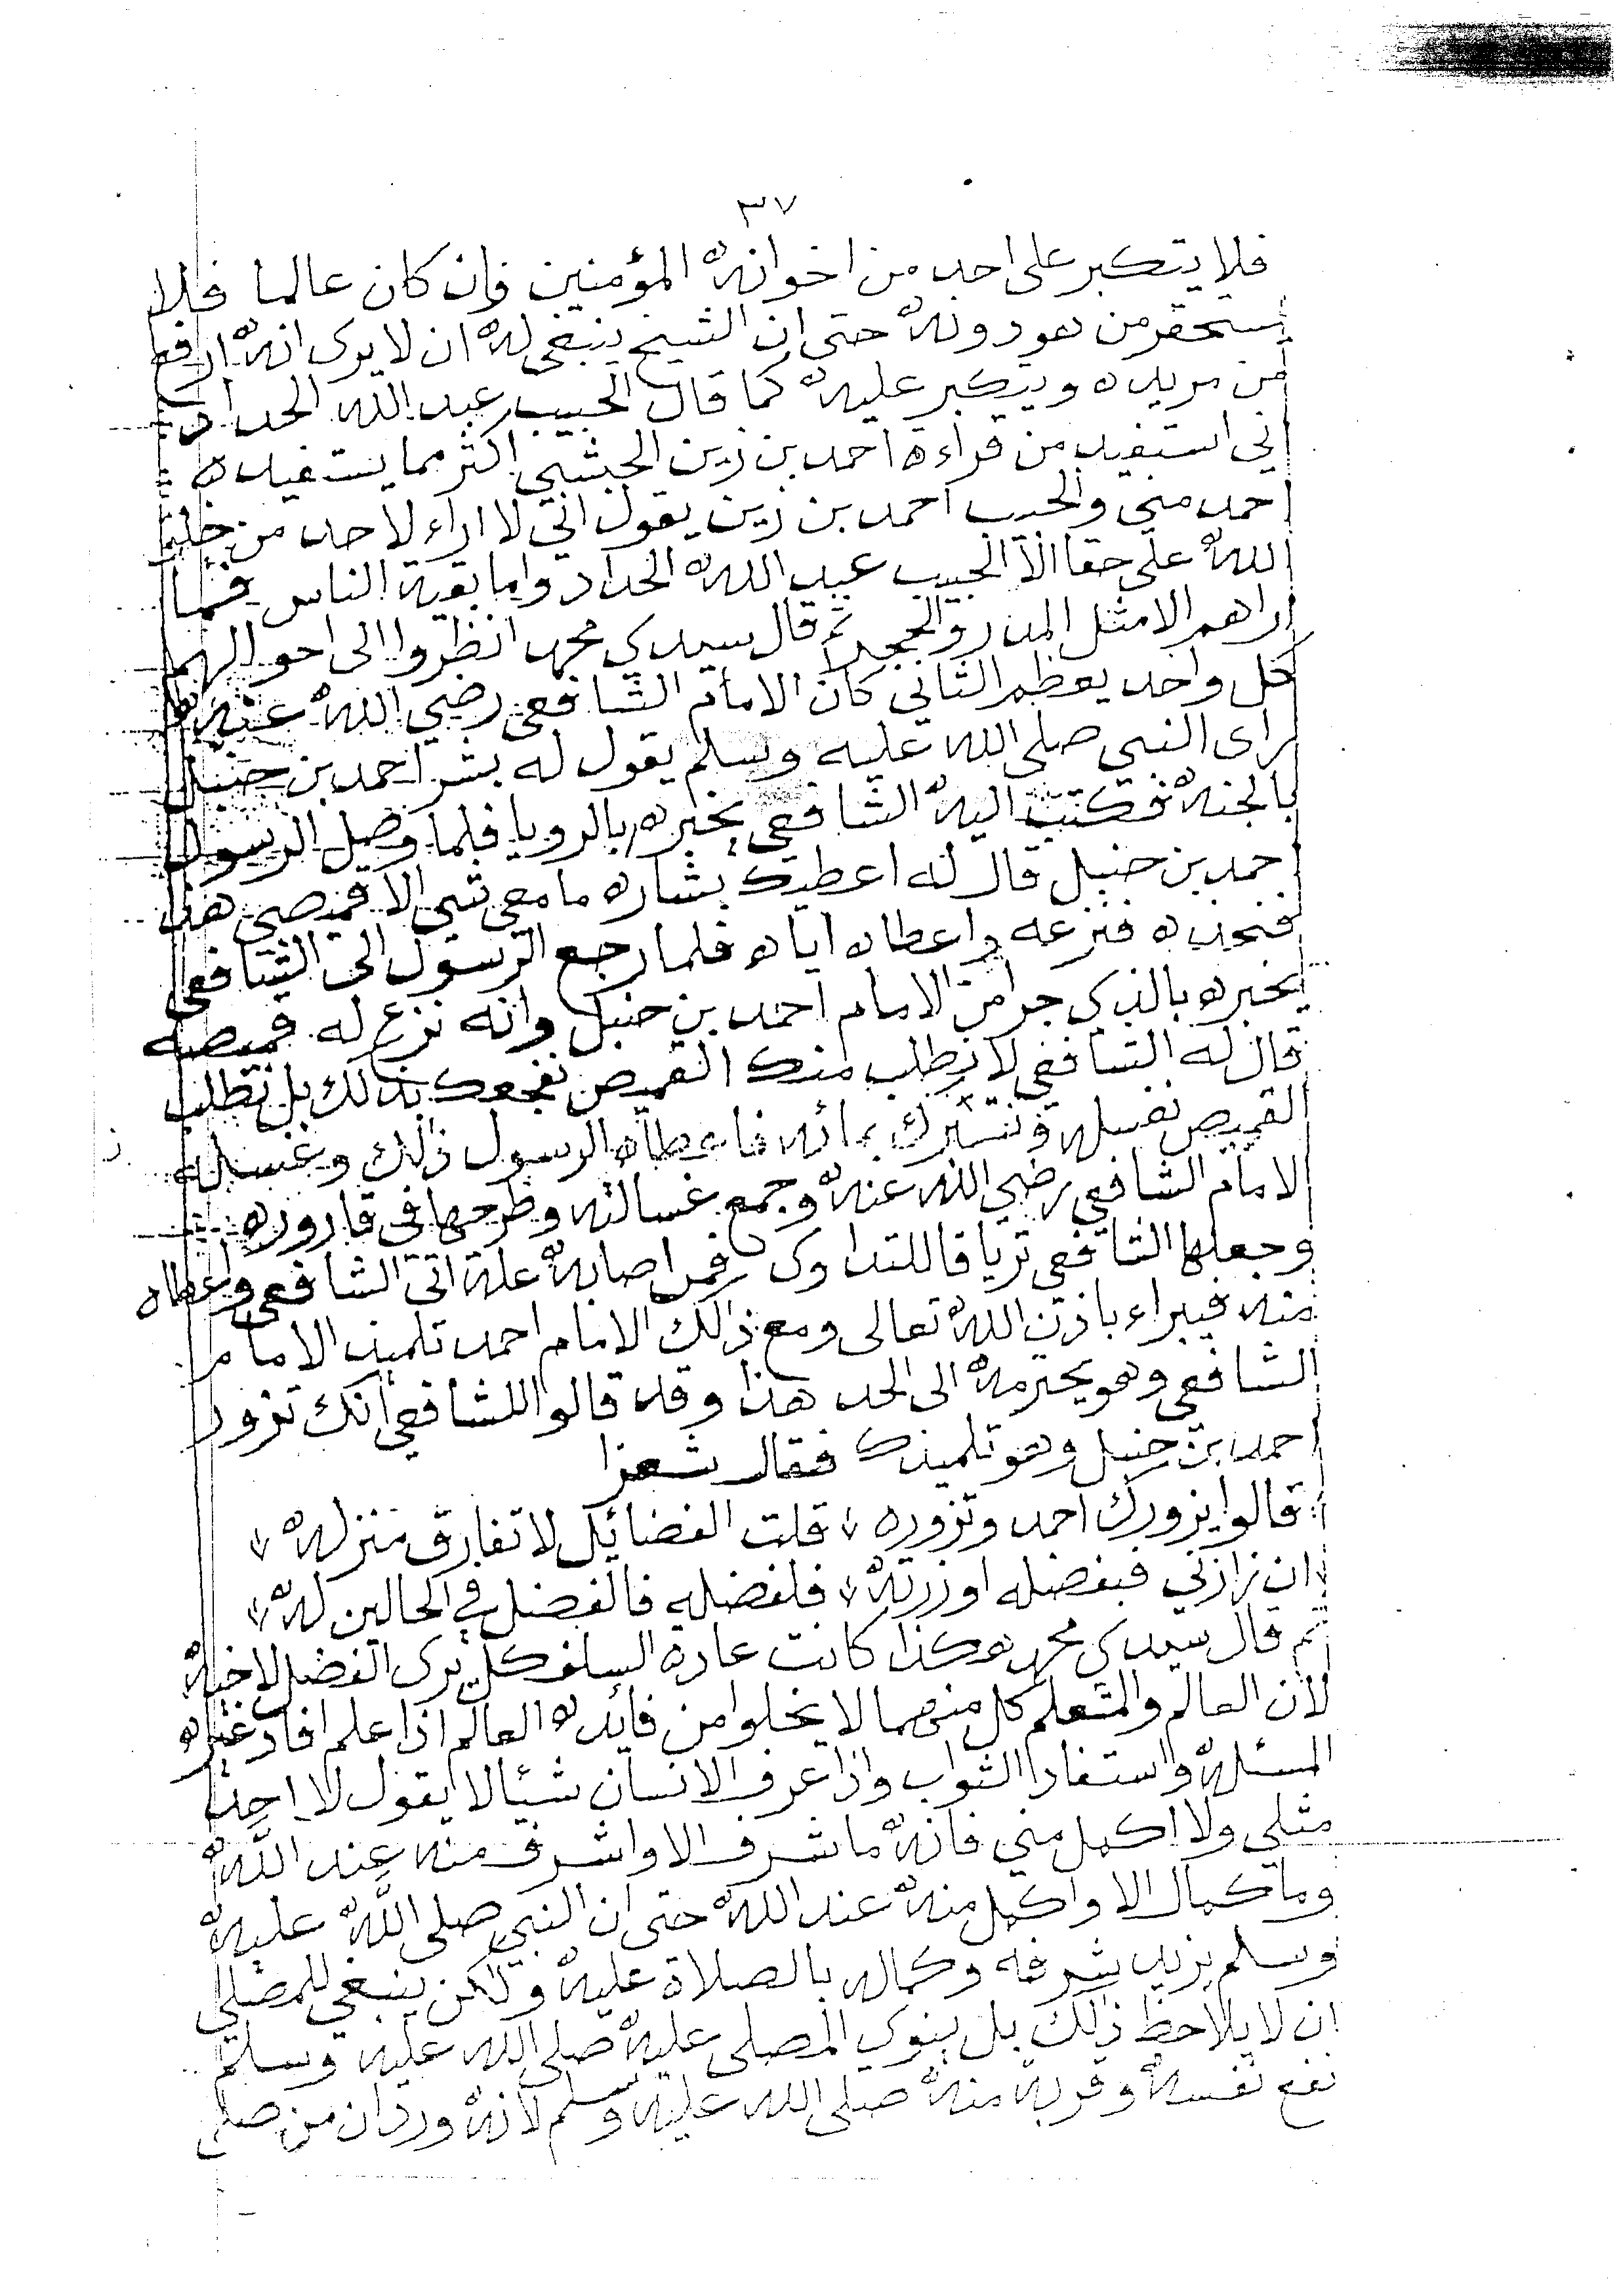 ٣٧
فلا يتكبر على احد من اخوانه المؤمنين فان كان عالما فلا
يستحقر من هو دونه حتى ان الشيخ ينبغي له ان لا يرى انه ارفع
من مريده ويتكبر عليه كما قال الحبيب عبد الله الحداد
اني استفيد من قراءة احمد بن زين الحبشي اكثر مما يستفيده
احمد مني والحبيب احمد بن زين يقول اني لا اراء لاحد من خلق
الله علي حقا الا الحبيب عبد الله الحداد واما بقية الناس فما
اراهم الا مثل المدر والحجر ثم قال سيدي محمد انظروا الى احوالهم
كل واحد يعظم الثاني كان الامام الشافعي رضي الله عنه
راى النبي صلى الله عليه وسلم يقول له بشر احمد بن حنبل
بالجنة فكتب اليه الشافعي يخبره بالرويا فلما وصل الرسول
احمد بن حنبل قال له اعطيك بشاره ما معي شي الا قميصي هذا
فنزعه واعطاه اياه فلما رجع الرسول الى الشافعي
يخبره بالذي جرا من الامام احمد بن حنبل وانه نزع له قميصه
قال له الشافعي لا نطلب منك القميص نفجعك بذلك بل نطلب
القميص نغسله ونتبرك بمائه فاعطاه الرسول ذلك وغسله
الامام الشافعي رضي الله عنه وجمع غسالته وطرحها في قاروره
وجعلها الشافعي ترياقا للتداوى فمن اصابه علة اتى الشافعي واعطاه
منه فيبراء باذن الله تعالى ومع ذالك الامام احمد تلميذ الامام
الشافعي وهو يحترمه الى الحد هذا وقد قالوا للشافعي انك تزور
احمد بن حنبل وهو تلميذك فقال شعرا
قالوا يزورك احمد وتزوره قلت الفضائل لا تفارق منزله
ان زارني فبفضله او زرته فلفضله فالفضل في الحالين له
ثم قال سيدي محمد هكذا كانت عادة السلف كل يرى الفضل لاخيه
لان العالم والمتعلم كل منهما لا يخلوا من فائده العالم اذا علم افاد غيره
المسئله واستفادا الثواب واذا عرف الانسان شيئا لا يقول لا احد
مثلي ولا اكمل مني فانه ما شرف الا واشرف منه عند الله
وما كمال الا واكمل منه عند الله حتى ان النبي صلى الله عليه
وسلم يزيد شرفه وكماله بالصلاة عليه ولكن ينبغي للمصلي
ان لا يلاحظ ذلك بل ينوي المصلى عليه صلى الله عليه وسلم
نفع نفسه وقربه منه صلى الله عليه وسلم لانه ورد ان من صلى